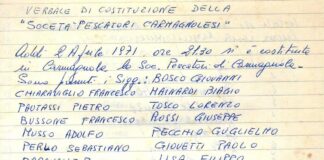 VERBALE DI COSTITUZIONE DELLA
"SOCETA' PESCATORI CARMAGNOLESI"
Addì 2 Aprile 1971, ore 21.30 si è costituita
in Carmagnola la Soc. Pescatori di Carmagnola.
Sono presenti i Sigg: BOSCO GIOVANNI
CHIARAVIGLIO FRANCESCO MAINARDI BIAGIO
PAUTASSI PIETRO TOSCO LORENZO
BUSSONE FRANCESCO ROSSI GIUSEPPE
MUSSO ADOLFO PECCHIO GUGLIELMO
PERLO SEBASTIANO GIOVETTI PAOLO
LISA FILIPPO